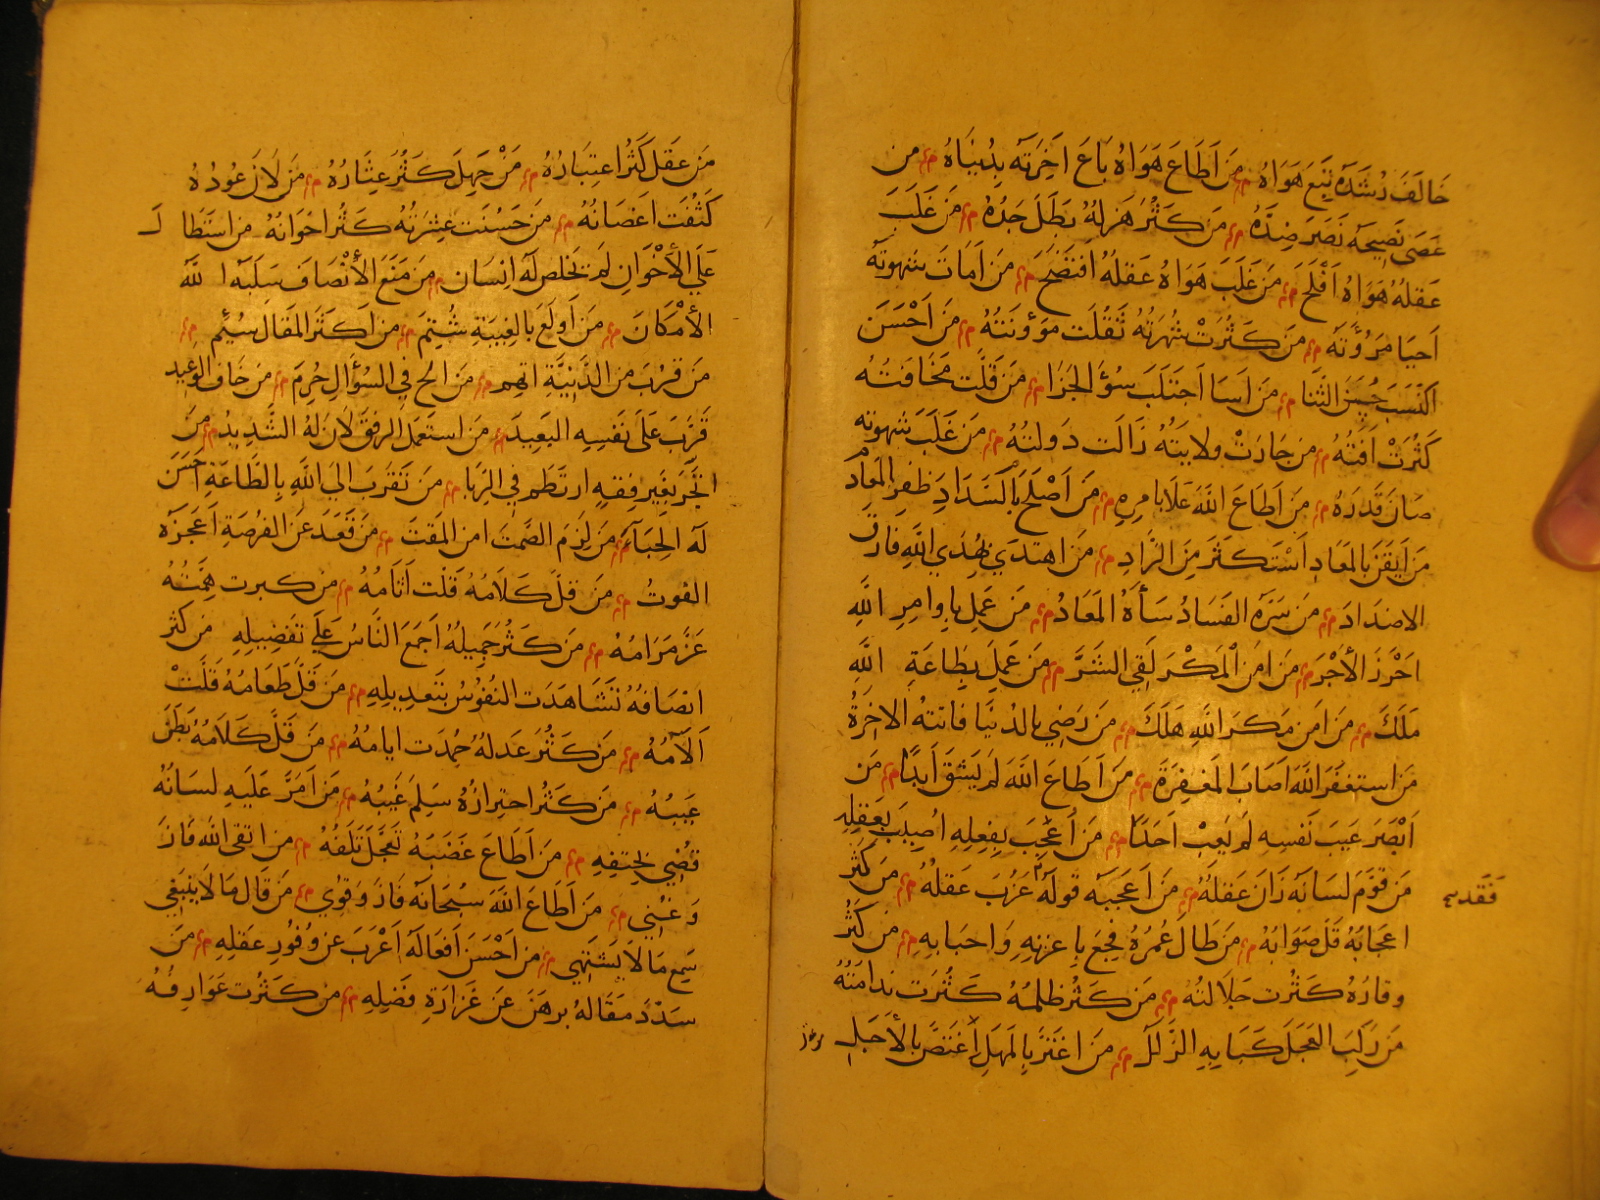 خَالَفَ رُشْدَهُ تَبِعَ هَوَاهُ مَن اَطَاعَ هَوَاهُ بَاعَ اخِرَتَه بِدُنيَاهُ من
عَصَى نَصِيحَه نَصَرَ ضِدَّهُ مَن كَثُرَ هَزلُهُ بَطَلَ جَدُهُ مَن غَلَبَ
عَقلُهُ هَوَاهُ اَفْلَحَ مَن غَلَبَ هَوَاهُ عَقلَهُ افتَضَحَ مَن اَمَاتَ شهوتَه
اَحيَا مَرُوَّتَه مَن كَثُرَتْ شهوَتُهُ ثَقُلَت مَؤونَتُهُ مَن اَحْسَنَ
اكتَسَبَ حُسنَ الثَنا مَن اَسَا اجتَلَبَ سُؤَ الجَزَا مَن قَلَّت مَخَافَتُه
كَثُرَتْ افَتُه من جَارَتْ ولايَتُهُ زَالَت دَولتُهُ مَن غَلَبَ شهوته
صَانَ قَدرَهُ مَن اَطَاعَ اللهَ عَلَا امرهِ مَن اَصْلَحَ السَدَادِ ظفر المَعاد
مَن اَيقَنَ بالمَعَادِ اَسْتَكثَرَ مِنَ الزَادِ مَن اهتَدَي بِهُدَي اللهِ فارَق
الاضدَادَ مَن سَرَّه الفَسَادُ سَأَهُ المَعَادُ مَن عَمِلَ باوامِرِ اللهِ
احْرَزَ الأجْرَ مَن امَن المَكْرَ لَقِي الشَرَّ مَن عَمِلَ بِطَاعَةِ اللهِ
مَلَكَ مَن امَن مَكرَ اللهِ هَلَكَ مَن رَضِي بالدُنيَا فَاتَتهُ الاخِرَةُ
مَن استَغفَرَ اللهَ اَصَابَ المَغفِرَةَ مَن اَطَاعَ اللهَ لَم يَشقَ اَبَدًا مَن
اَبْصَرَ عَيبَ نَفسِهِ لَم يَعِبْ اَحَدًا مَن اُعْجِبَ بِفِعلِهِ اُصِيبَ بعَقلِهِ
مَن قَوَّمَ لسَانَه زَانَ عَقلَهُ مَن اَعجَبَه قَولُه عَزُبَ عَقلُهُ مَن كَثُرَ
فَقَد
اعجَابُهُ قَلَّ صَوَابُهُ مَن طَالَ عُمرُهُ فُجِعَ بِاعِزتِهِ وَاحبَابهِ مَن كَثُرَ
وقارُهُ كَثُرَت جَلَالتُه مَن كَثُرَ ظلمُهُ كَثُرَت نَدامَتُهُ
مَن رَكِبَ العَجَلَ كَبَا بِهِ الزَلَلُ مَن اغتَرَّ بالمَهَلِ اُغتَصَّ بالأجَلِ
مَن عَقَلَ كَثُرَ اعتِبَارُهُ مَنْ جَهِلَ كَثُرَ عِثَارُهُ مَن لَانَ عُودُهُ
كَثُفَت اَغصَانُهُ مَن حَسُنَت عِشرَتُهُ كَثُرَ اخوَانُهُ مَن استَطَالَ
عَلي الأخْوَانِ لَم يَخلص لَهُ اِنسَان مَن مَنَعَ الأنْصَافَ سَلَبَه اللهُ
الأمْكَانَ مَن اَولَعَ بِالغِيبَةِ شُتِمَ مَن اَكثَرَ المَقَالَ سُئِم
مَن قَرُبَ مِنَ الدَّنِيَّةِ اتُهِم مَن اَلحَّ في السُؤَالِ حُرِمَ مَن خَافَ الوعِيد
قَرَّبَ عَلى نَفسِهِ البَعِيدَ مَن استَعمَلَ الرِفقَ لَانَ لَهُ الشَدِيدُ مَن
اتَّجَرَ بغَيرِ فِقهٍ ارتَطَم فِي الرِّبَا مَن تَقَرَّبَ اليَ اللهِ بِالطَّاعَةِ اَحسَنَ
لَه الحِبَآءَ مَن لَزِمَ الصَّمتَ امن المَقتَ مَن قَعَدَ عَن الفُرصَةِ اَعجَزَه
الفَوتُ مَن قَلَّ كَلَامُهُ قَلَّت اثَامُهُ مَن كبرت هِمَّتُهُ
عَزَّ مَرَامُهُ مَن كَثُرَ جَمِيلُهُ اَجمَعَ النَّاسُ عَلَي تَفضِيلِهِ مَن كَثُرَ
انْصَافُهُ تَشَاهَدَت النُفُوسُ بِتَعدِيلِهِ مَن قَلَّ طَعَامُهُ قَلَّتْ
اَلَامُهُ مَن كَثُرَ عَدلُهُ حُمِدَت ايامُهُ مَن قَلَّ كَلَامُهُ بَطَنَ
عَيبُهُ مَن كَثُرَ احتِرَازُهُ سَلِمَ غَيبُهُ مَن اَمَّرَ عَلَيهِ لسَانَهُ
قَضَي بحَتفِهِ مَن اَطَاعَ غَضَبَهُ تَعَجَّلَ تَلَفَهُ مَن اتقَى اللهَ فَازَ
وَغَنِي مَن اَطَاعَ اللهَ سُبحَانَه فَازَ وَقَوي مَن قَالَ مَا لَا يَنبَغِي
سَمِعَ مَا لَا يَشتَهِي مَن اَحْسَنَ اَفعَالَه اَعْرَبَ عَن وُفُورِ عَقلِهِ مَن
سَدَّدَ مَقَالَهُ بَرهَنَ عَن غَزَارَةِ فَضلِهِ مَن كَثُرَت عَوَارِفُهُ